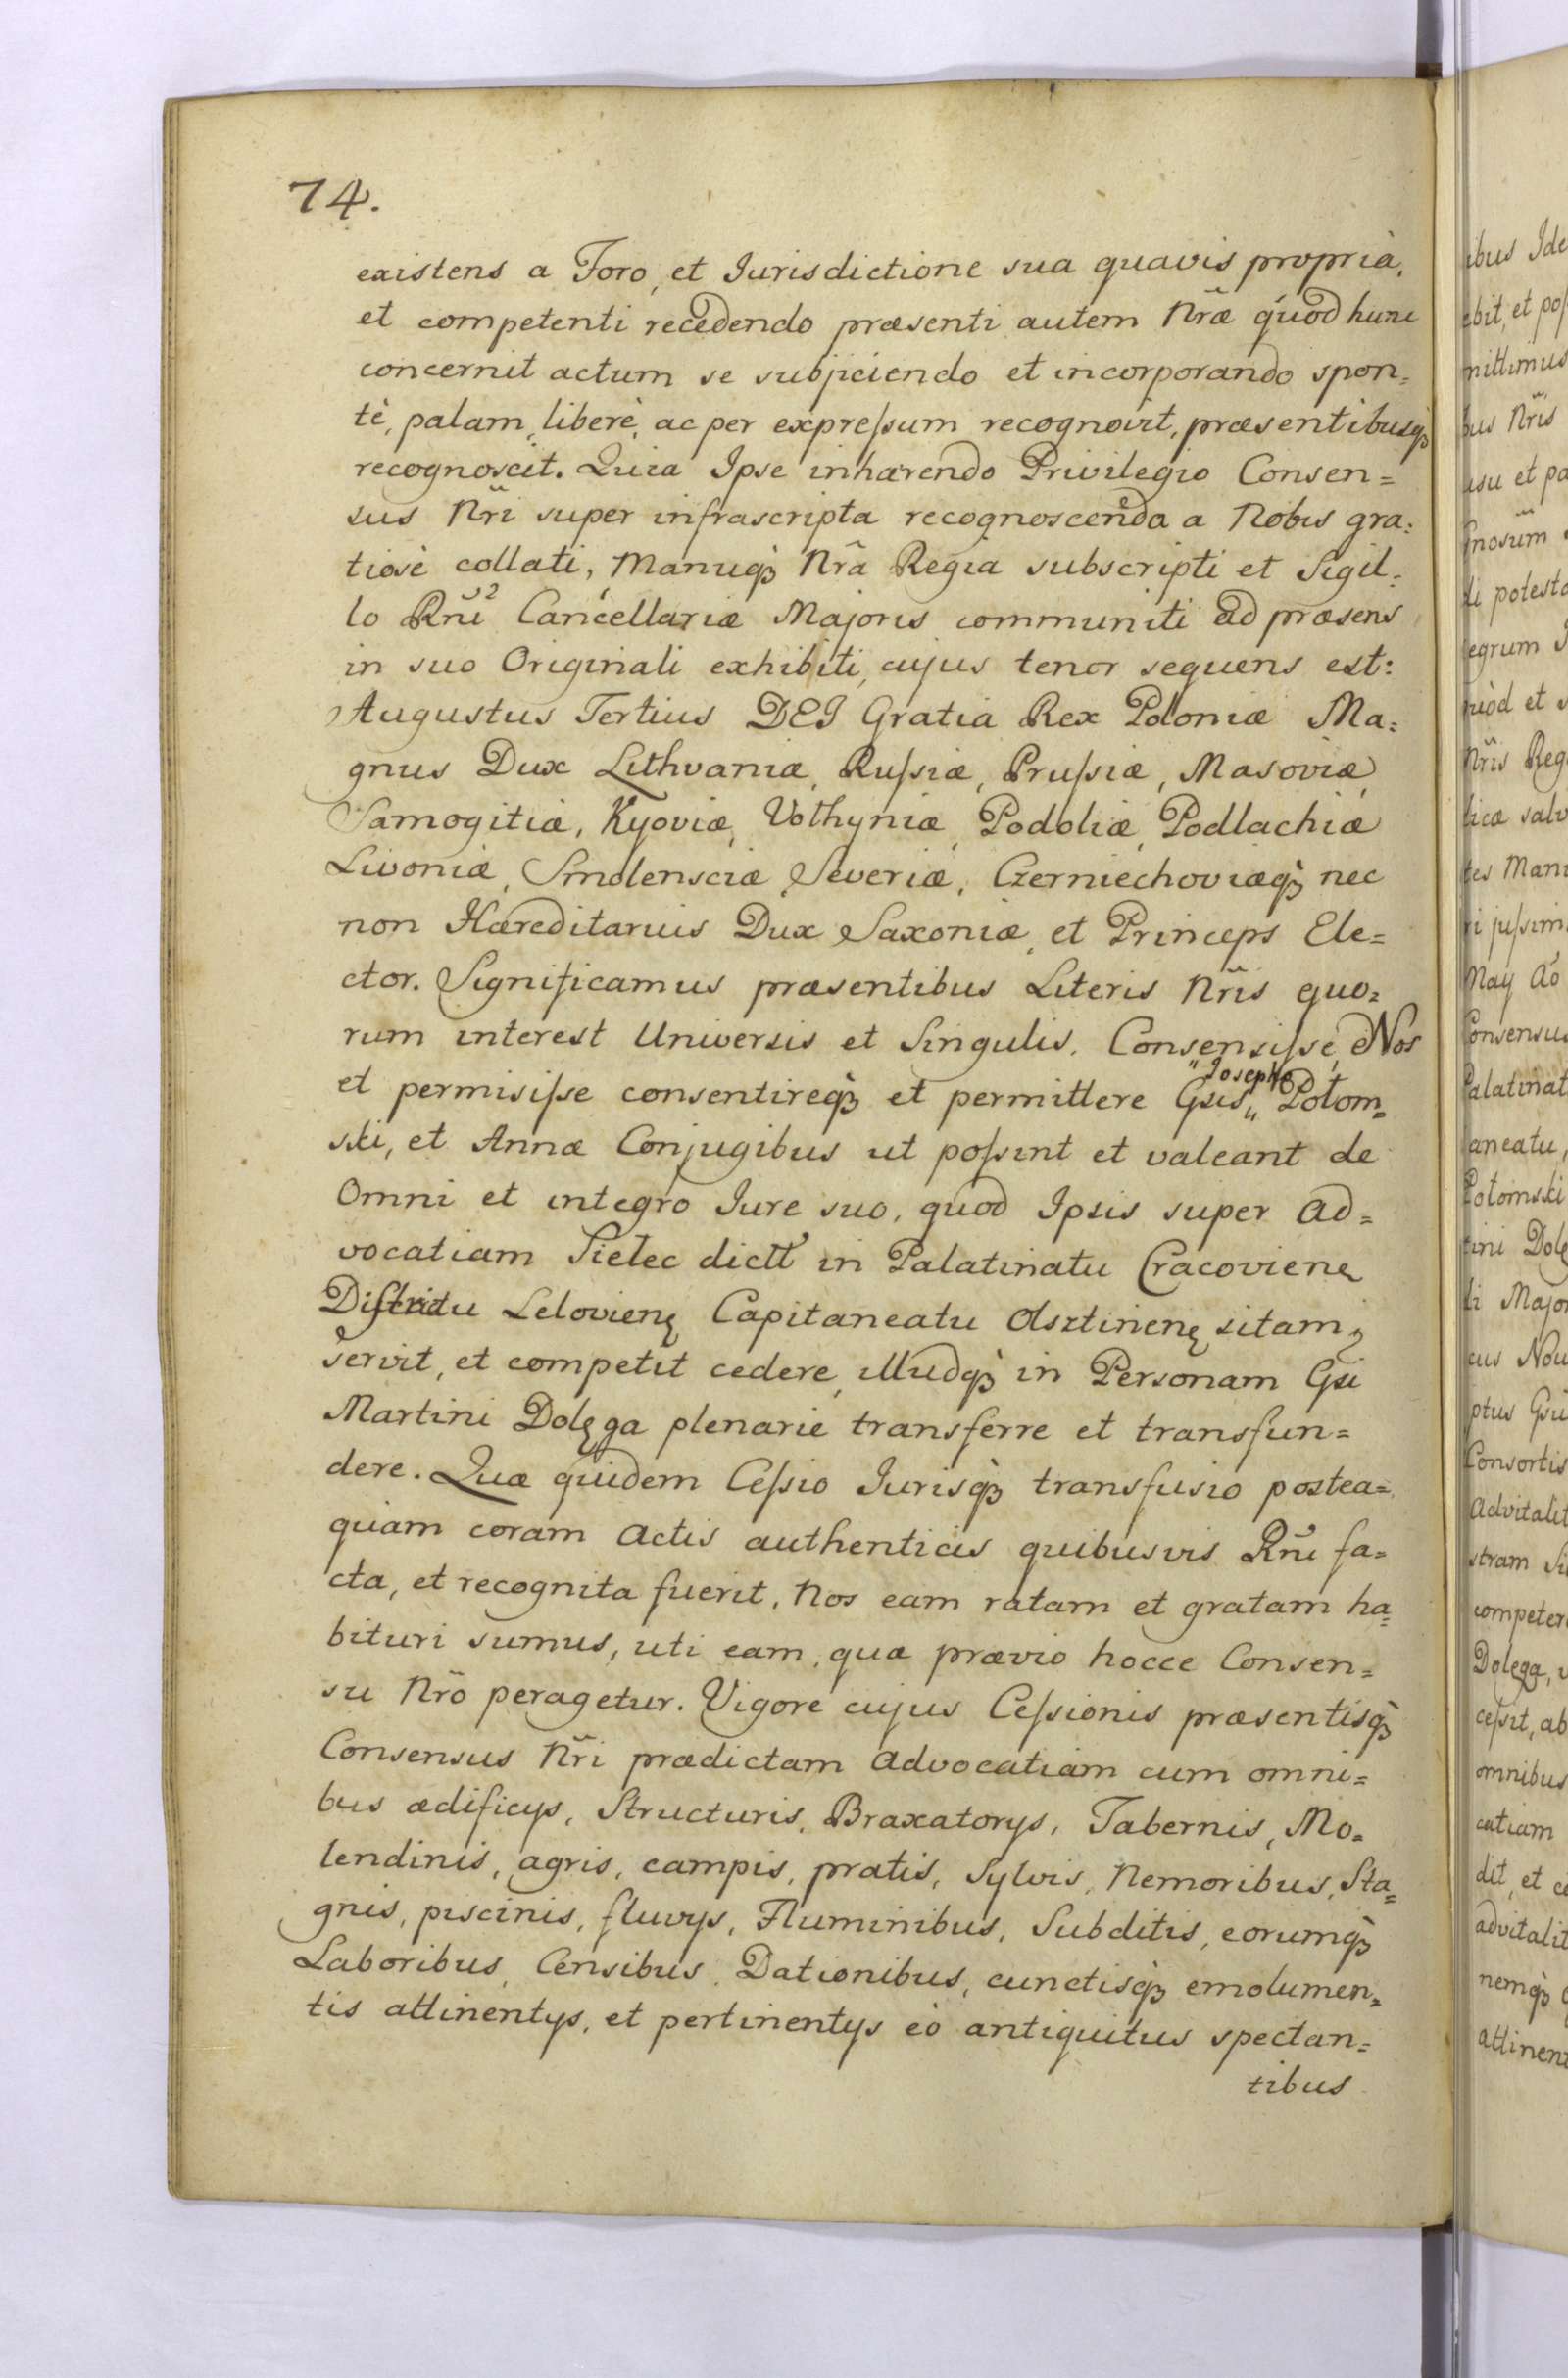 74.
existens a Foro, et Jurisdictione sua quavis propriâ,
et competenti recedendo præsenti autem Nr̃æ quod hunc
concernit actum se subjiciendo et incorporando spon=
tè, palam, liberè, ac per expreſsum recognovit, præsentibusq̃
recognoscit. Quia Ipse inhærendo Privilegio Consen=
sus Nr̃i super infrascripta recognoscenda a Nobis gra=
tiosè collati, Manuq̃ Nr̃a Regia subscripti et Sigil=
lo Rñi Cancellariæ Majoris communiti ad præsens
in suo Originali exhibiti, cujus tenor sequens est:
Augustus Tertius DEI Gratia Rex Poloniæ Ma=
gnus Dux Lithvaniæ, Ruſsiæ, Pruſsiæ, Masoviæ,
Samogitiæ, Kyoviæ, Volhyniæ, Podoliæ, Podlachiæ
Livoniæ, Smolensciæ, Severiæ, Czerniechoviæq̃ nec
non Hæreditarius Dux Saxoniæ, et Princeps Ele=
ctor. Significamus præsentibus Literis Nr̃is quo=
rum interest Universis et Singulis. Consensiſse Nos
et permisiſse consentireq̃ et permittere Gsis "Josepho" Potom=
ski, et Annæ Conjugibus ut poſsint et valeant de
Omni et integro Jure suo, quod Ipsis super Ad=
vocatiam Sielec dictt in Palatinatu Cracovienę
Districtu Lelovienę Capitaneatu Olsztinenę sitam,
servit, et competit cedere, illudq̃ in Personam Gsi
Martini Dolęga plenarie transferre et transfun=
dere. Quæ quidem Ceſsio Jurisq̃ transfusio postea=
quam coram Actis authenticis quibusvis Rñi fa=
cta, et recognita fuerit, Nos eam ratam et gratam ha=
bituri sumus, uti eam, quæ prævio hocce Consen=
su Nr̃o peragetur. Vigore cujus Ceſsionis præsentisq̃
Consensus Nr̃i prædictam Advocatiam cum omni=
bus ædificys, Structuris, Braxatorys, Tabernis, Mo=
lendinis, agris, campis, pratis, Sylvis, Nemoribus, Sta=
gnis, piscinis, fluvys, Fluminibus, Subditis, eorumq̃
Laboribus, Censibus, Dationibus, cunctisq̃ emolumen=
tis attinentys, et pertinentys eò antiquitus spectan=
tibus